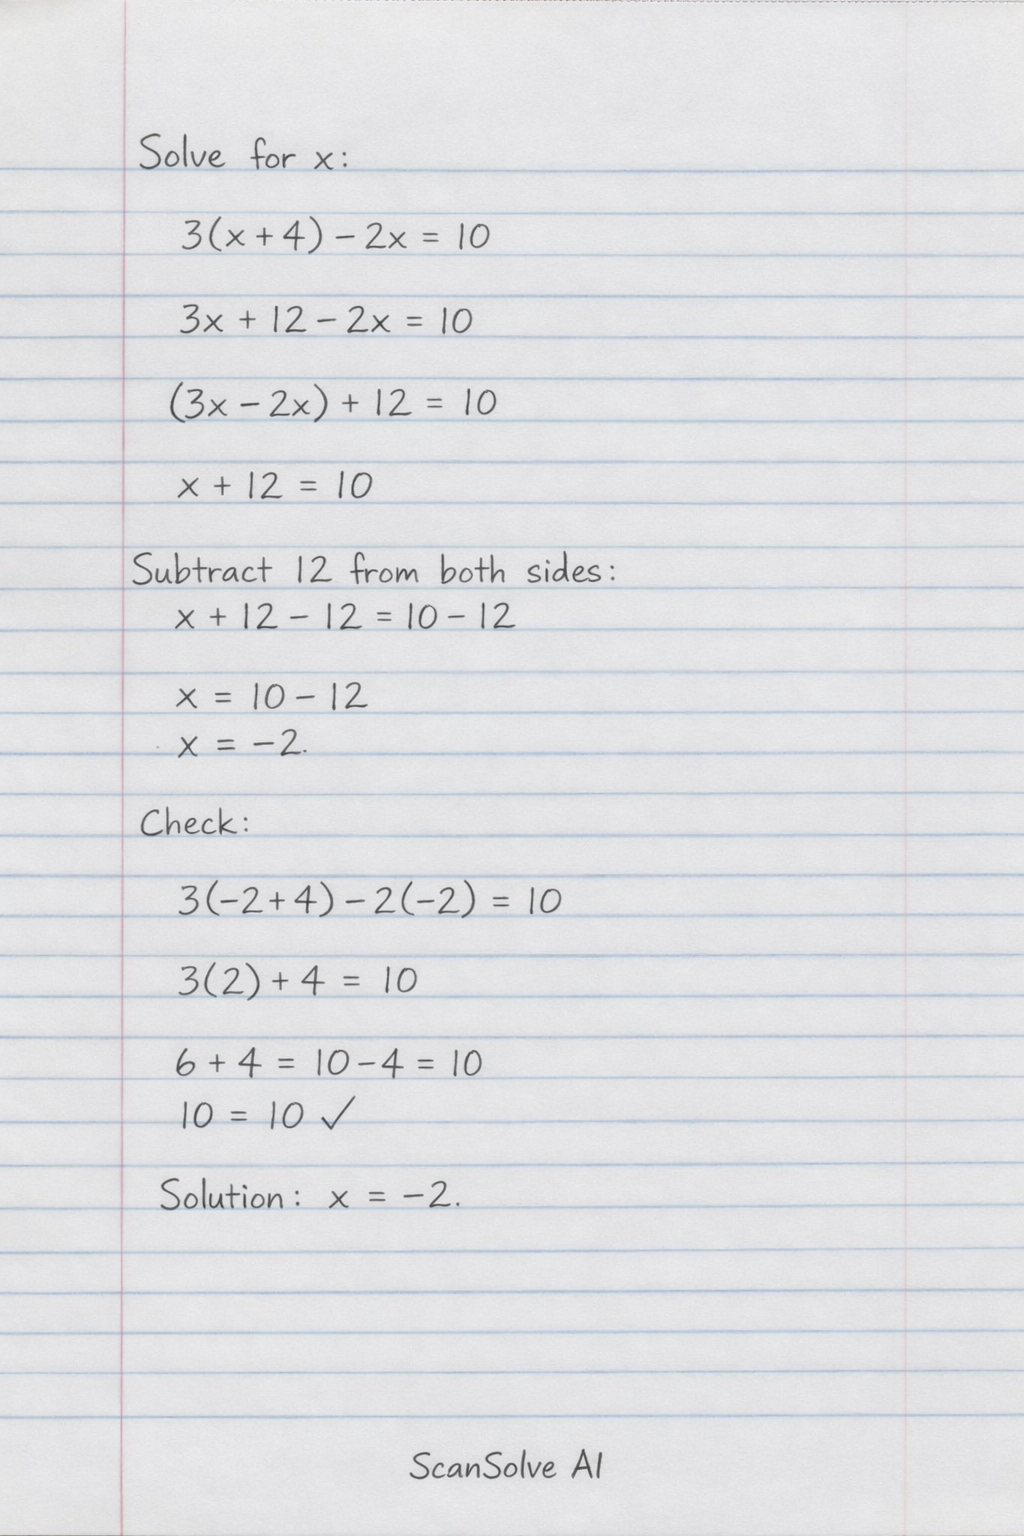 Solve for x:
3(x+4) - 2x = 10
3x + 12 - 2x = 10
(3x - 2x) + 12 = 10
x + 12 = 10
Subtract 12 from both sides:
x + 12 - 12 = 10 - 12
x = 10 - 12
x = -2.
Check:
3(-2+4) - 2(-2) = 10
3(2) + 4 = 10
6 + 4 = 10 - 4 = 10
10 = 10 ✓
Solution: x = -2.
ScanSolve AI